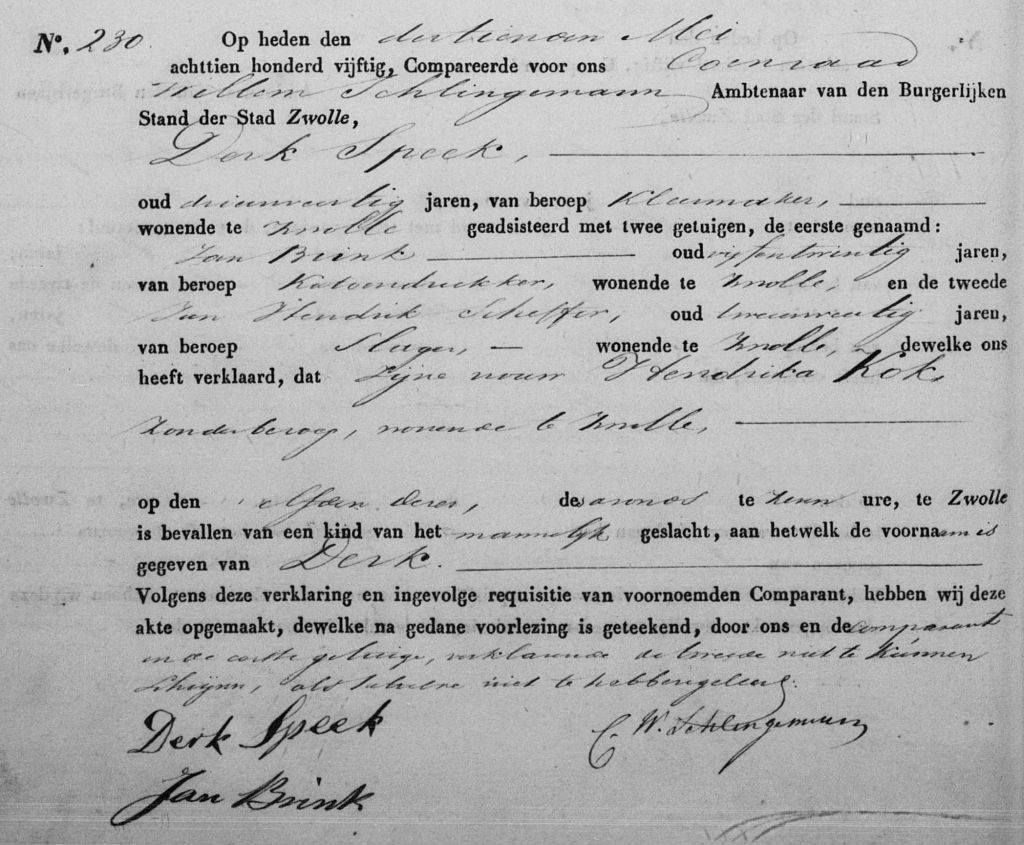 No. 230. Op heden den dertienden Mei
achttien honderd vijftig, Compareerde voor ons Coenraad
Willem Schlingemann Ambtenaar van den Burgerlijken
Stand der Stad Zwolle,
Derk Speek,
oud drieenveertig jaren, van beroep Kleermaker,
wonende te Zwolle geadsisteerd met twee getuigen, de eerste genaamd:
Jan Brink oud vijfentwintig jaren,
van beroep Katoendrukker, wonende te Zwolle, en de tweede
Jan Hendrik Scheffer, oud jaren,
van beroep Slager, wonende te Zwolle, dewelke ons
heeft verklaard, dat Zijne vrouw Hendrika Kok,
zonder beroep, wonende te Zwolle,
op den elfden dezer, des avonds te zeven ure, te Zwolle
is bevallen van een kind van het mannelijk geslacht, aan hetwelk de voornaam is
gegeven van Derk.
Volgens deze verklaring en ingevolge requisitie van voornoemden Comparant, hebben wij deze
akte opgemaakt, dewelke na gedane voorlezing is geteekend, door ons en de comparant
en de eerste getuige, verklarende de tweede niet te kunnen
schrijven, als zulks niet te hebben geleerd.
Derk Speek C. W. Schlingemann
Jan Brink